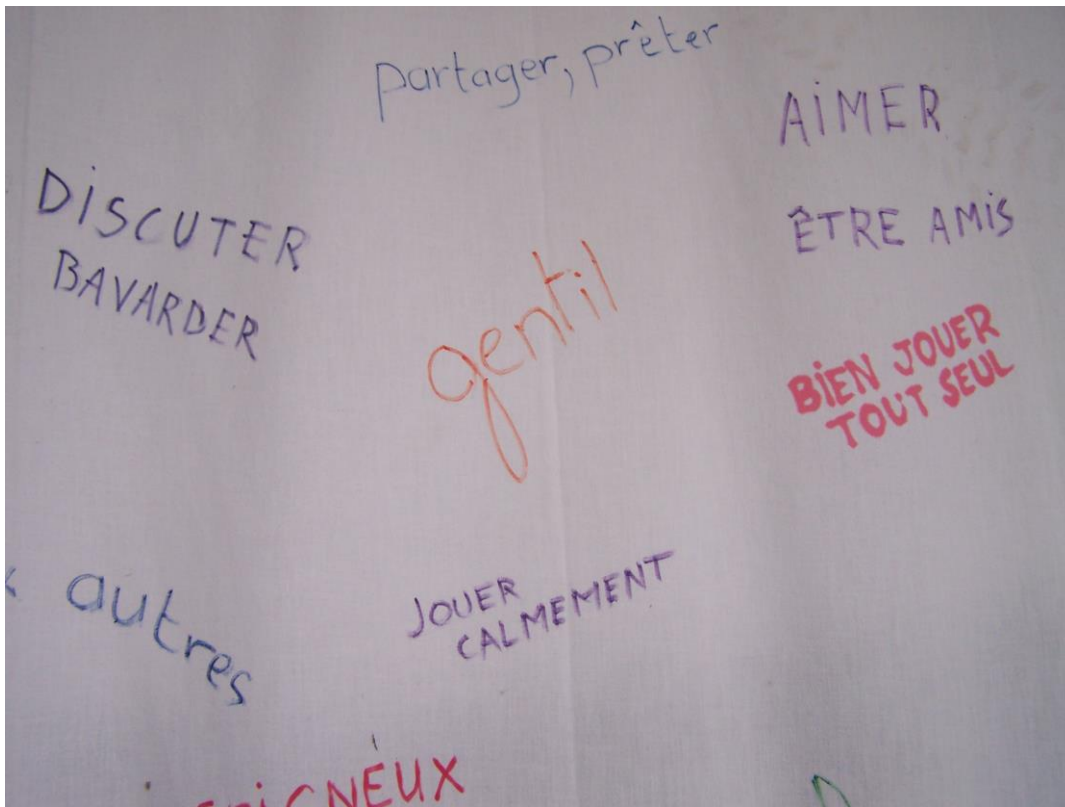 partager, prêter
AIMER
DISCUTER
BAVARDER
ÊTRE AMIS
gentil
BIEN JOUER
TOUT SEUL
autres
JOUER
CALMEMENT